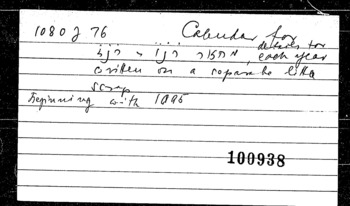 1080 J 76 Calendar for
details for
each year
written on a separate little
scrap
Beginning with 1095
100938